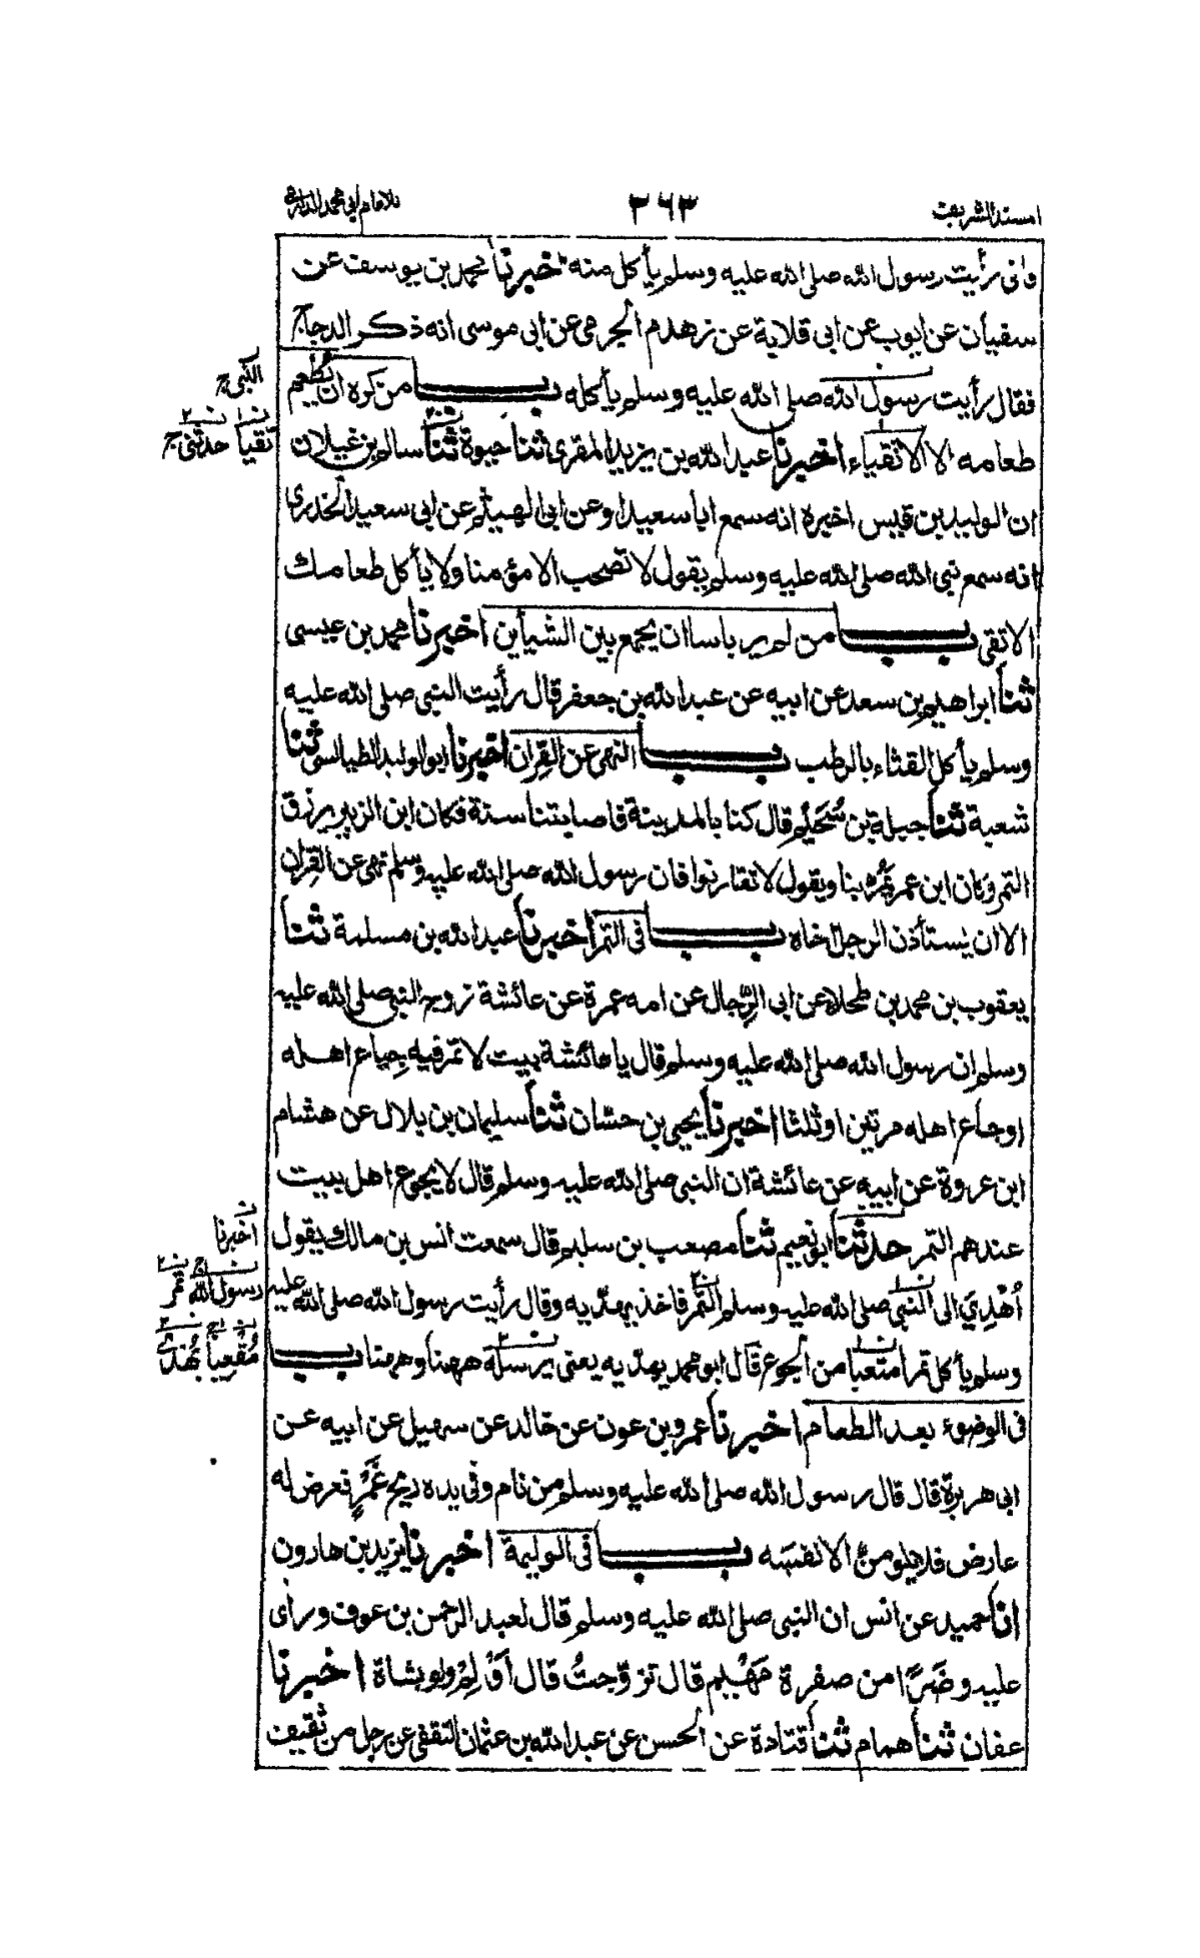 المسند الشريف
٣٦٣
للامام ابى محمد الدارمى
وانى رأيت رسول الله صلى الله عليه وسلم يأكل منه اخبرنا محمد بن يوسف عن
سفيان عن ايوب عن ابى قلابة عن زهدم الجرمى عن ابى موسى انه ذكر الدجاج
فقال رأيت رسول الله صلى الله عليه وسلم يأكله باب من كره ان يطعم
طعامه الا الاتقياء اخبرنا عبد الله بن يزيد المقرى ثنا حيوة ثنا سالم بن غيلان
ان الوليد بن قيس اخبره انه سمع ابا سعيد او عن ابى الهيثم عن ابى سعيد الخدرى
انه سمع نبى الله صلى الله عليه وسلم يقول لا تصحب الا مؤمنا ولا يأكل طعامك
الا تقى باب من لم ير باسا ان يجمع بين الشيأين اخبرنا محمد بن عيسى
ثنا ابراهيم بن سعد عن ابيه عن عبد الله بن جعفر قال رأيت النبى صلى الله عليه
وسلم يأكل القثاء بالرطب باب النهى عن القران اخبرنا ابو الوليد الطيالسى ثنا
شعبة ثنا جبلة بن سُحَيم قال كنا بالمدينة فاصابتنا سنة فكان ابن الزبير يرزق
التمر وكان ابن عمر يَمُرُّ بنا ويقول لا تقارنوا فان رسول الله صلى الله عليه وسلم نهى عن القِران
الا ان يستأذن الرجل اخاه باب فى التمر اخبرنا عبد الله بن مسلمة ثنا
يعقوب بن محمد بن طحلاء عن ابى الرِّجال عن امه عمرة عن عائشة زوج النبى صلى الله عليه
وسلم ان رسول الله صلى الله عليه وسلم قال يا عائشة بيت لا تمر فيه جياع اهله
او جاع اهله مرتين او ثلثا اخبرنا يحيى بن حسان ثنا سليمان بن بلال عن هشام
ابن عروة عن ابيه عن عائشة ان النبى صلى الله عليه وسلم قال لا يجوع اهل بيت
عندهم التمر حدثنا ابو نعيم ثنا مصعب بن سليم قال سمعت انس بن مالك يقول
اُهْدِيَ الى النبى صلى الله عليه وسلم التمر فاخذ يهدّيه وقال رأيت رسول الله صلى الله عليه
وسلم يأكل تمرا مقعيا من الجوع قال ابو محمد يهدّيه يعنى يرسله ههنا وههنا باب
فى الوضوء بعد الطعام اخبرنا عمرو بن عون عن خالد عن سهيل عن ابيه عن
ابى هريرة قال قال رسول الله صلى الله عليه وسلم من نام وفى يده ريح غَمَرٍ فعرض له
عارض فلا يلومنَّ الا نفسَه باب فى الوليمة اخبرنا يزيد بن هارون
انا حميد عن انس ان النبى صلى الله عليه وسلم قال لعبد الرحمن بن عوف ورأى
عليه وضَرًا من صفرة مَهْيَم قال تزوّجتُ قال اَوْلِمْ ولو بشاة اخبرنا
عفان ثنا همام ثنا قتادة عن الحسن عن عبد الله بن عثمان الثقفى عن رجل من ثقيف
النبى
تقيا حدثنى
اخبرنا
رسول الله تمر
مُقْعِيا يُهْدى